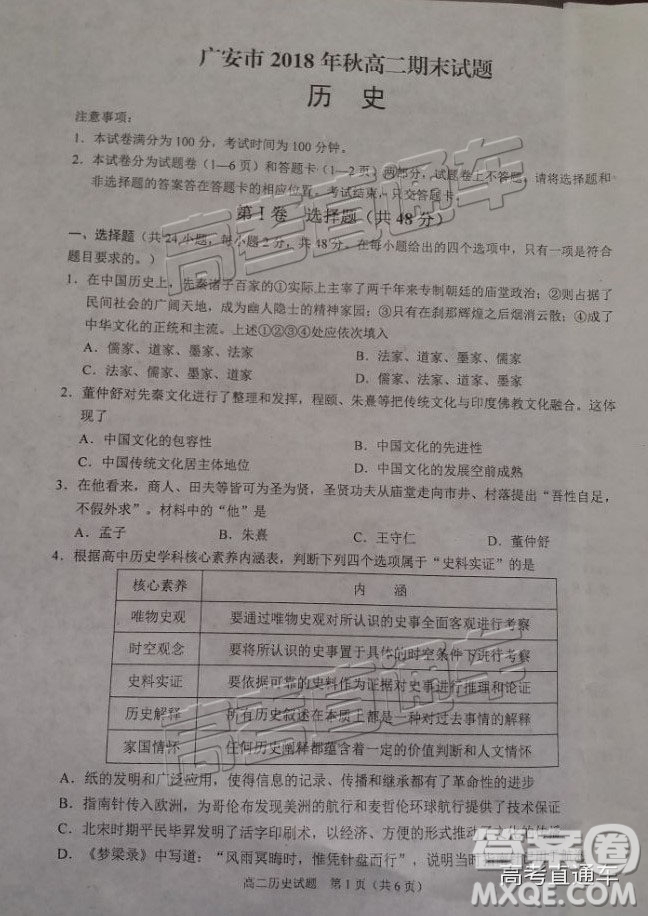 广安市 2018 年秋高二期末试题
历 史
注意事项：
1．本试卷满分为 100 分，考试时间为 100 分钟。
2．本试卷分为试题卷（1—6 页）和答题卡（1—2 页）两部分，试题卷上不答题，请将选择题和
非选择题的答案答在答题卡的相应位置，考试结束，只交答题卡。
第 I 卷 选择题（共 48 分）
一、选择题（共 24 小题，每小题 2 分，共 48 分，在每小题给出的四个选项中，只有一项是符合
题目要求的。）
1．在中国历史上，先秦诸子百家的①实际上主宰了两千年来专制朝廷的庙堂政治；②则占据了
民间社会的广阔天地，成为幽人隐士的精神家园；③只有在刹那辉煌之后烟消云散；④成了
中华文化的正统和主流。上述①②③④处应依次填入
A．儒家、道家、墨家、法家 B．法家、道家、墨家、儒家
C．法家、墨家、道家、儒家 D．儒家、法家、道家、墨家
2．董仲舒对先秦文化进行了整理和发挥，程颐、朱熹等把传统文化与印度佛教文化融合。这体
现了
A．中国文化的包容性 B．中国文化的先进性
C．中国传统文化居主体地位 D．中国文化的发展空前成熟
3．在他看来，商人、田夫等皆可为圣为贤，圣贤功夫从庙堂走向市井、村落提出“吾性自足，
不假外求”。材料中的“他”是
A．孟子 B．朱熹 C．王守仁 D．董仲舒
4．根据高中历史学科核心素养内涵表，判断下列四个选项属于“史料实证”的是
核心素养 内 涵
唯物史观 要通过唯物史观对所认识的史事全面客观进行考察
时空观念 要将所认识的史事置于具体的时空条件下进行考察
史料实证 要依据可靠的史料作为证据对史事进行推理和论证
历史解释 所有历史叙述在本质上都是一种对过去事情的解释
家国情怀 任何历史阐释都蕴含着一定的价值判断和人文情怀
A．纸的发明和广泛应用，使得信息的记录、传播和继承都有了革命性的进步
B．指南针传入欧洲，为哥伦布发现美洲的航行和麦哲伦环球航行提供了技术保证
C．北宋时期平民毕昇发明了活字印刷术，以经济、方便的形式推动
D．《梦梁录》中写道：“风雨冥晦时，惟凭针盘而行”，说明当时
高二历史试题 第 1 页（共 6 页）
高考直通车
答案圈
高考直通车
MXQE.COM